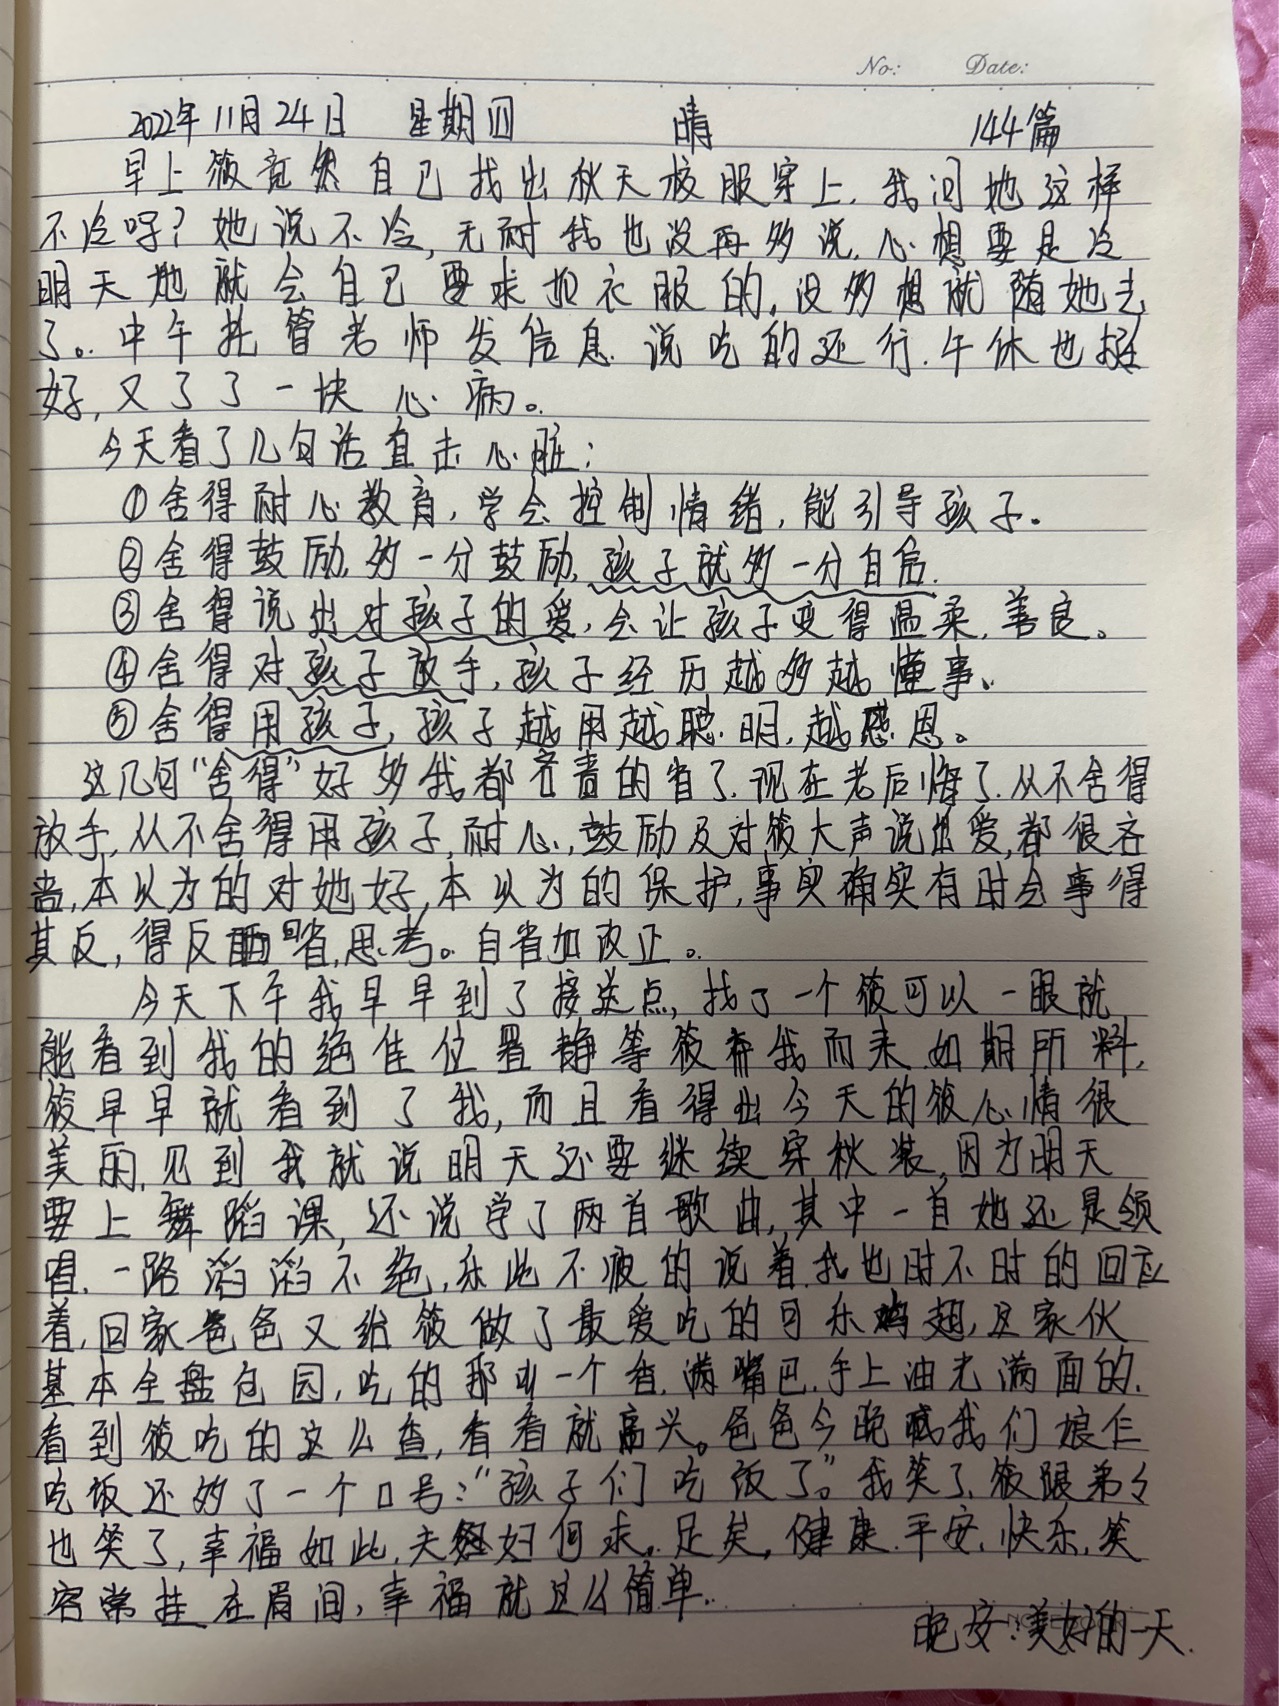 No: Date:
2022年11月24日 星期四 晴 144篇
早上筱竟然自己找出秋天校服穿上.我问她这样
不冷吗?她说不冷,无耐我也没再多说.心想要是冷
明天她就会自己要求加衣服的,没多想就随她去
了。中午托管老师发信息.说吃的还行.午休也挺
好,又了了一块心病。
今天看了几句话直击心脏:
①舍得耐心教育,学会控制情绪,能引导孩子.
②舍得鼓励,多一分鼓励,孩子就多一分自信.
③舍得说出对孩子的爱,会让孩子变得温柔.善良。
④舍得对孩子放手,孩子经历越多越懂事、
⑤舍得用孩子,孩子越用越聪明,越感恩。
这几句“舍得”好多我都吝啬的省了.现在老后悔了.从不舍得
放手,从不舍得用孩子,耐心,鼓励及对筱大声说出爱,都很吝
啬,本以为的对她好,本以为的保护,事实确实有时会事得
其反,得反省,思考。自省加改正。
今天下午我早早到了接送点,找了一个筱可以一眼就
能看到我的绝佳位置静等筱奔我而来.如期所料,
筱早早就看到了我,而且看得出今天的筱心情很
美丽,见到我就说明天还要继续穿秋装,因为明天
要上舞蹈课,还说学了两首歌曲,其中一首她还是领
唱.一路滔滔不绝,乐此不疲的说着.我也时不时的回应
着,回家爸爸又给筱做了最爱吃的可乐鸡翅,这家伙
基本全盘包园,吃的那叫一个香.满嘴巴.手上油光满面的.
看到筱吃的这么香,看着就高兴。爸爸今晚喊我们娘仨
吃饭还多了一个口号:“孩子们吃饭了。”我笑了.筱跟弟弟
也笑了,幸福如此,夫妇何求.足矣,健康.平安.快乐.笑
容常挂在眉间,幸福就这么简单.
晚安:美好的一天.